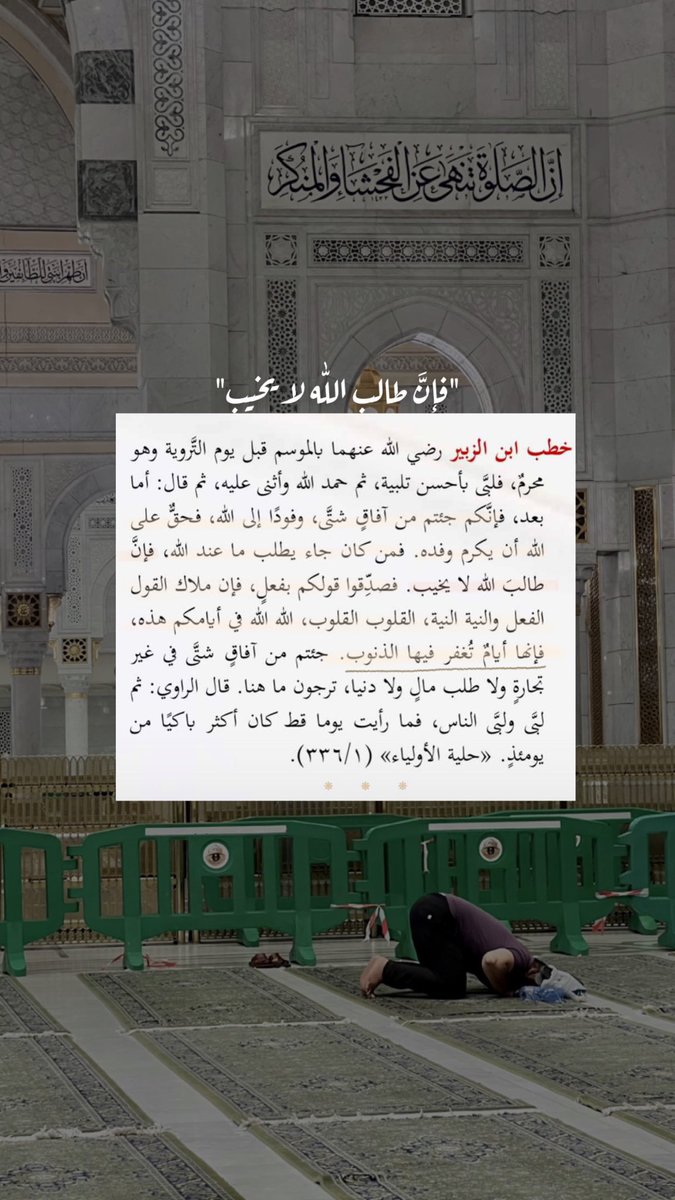 إِنَّ الصَّلَوٰةَ تَنْهَىٰ عَنِ الْفَحْشَآءِ وَالْمُنكَرِ
أَن طَهِّرَا بَيْتِيَ لِلطَّآئِفِينَ
"فإنَّ طالب الله لا يخيب"
خطب ابن الزبير رضي الله عنهما بالموسم قبل يوم التَّروية وهو
محرمٌ، فلبَّى بأحسن تلبية، ثم حمد الله وأثنى عليه، ثم قال: أما
بعد، فإنَّكم جئتم من آفاقٍ شتَّى، وفودًا إلى الله، فحقٌّ على
الله أن يكرم وفده. فمن كان جاء يطلب ما عند الله، فإنَّ
طالبَ الله لا يخيب. فصدِّقوا قولكم بفعلٍ، فإن ملاك القول
الفعل والنية النية، القلوب القلوب، الله الله في أيامكم هذه،
فإنها أيامٌ تُغفر فيها الذنوب. جئتم من آفاقٍ شتَّى في غير
تجارةٍ ولا طلب مالٍ ولا دنيا، ترجون ما هنا. قال الراوي: ثم
لبَّى ولبَّى الناس، فما رأيت يوما قط كان أكثر باكيًا من
يومئذٍ. «حلية الأولياء» (٣٣٦/١).